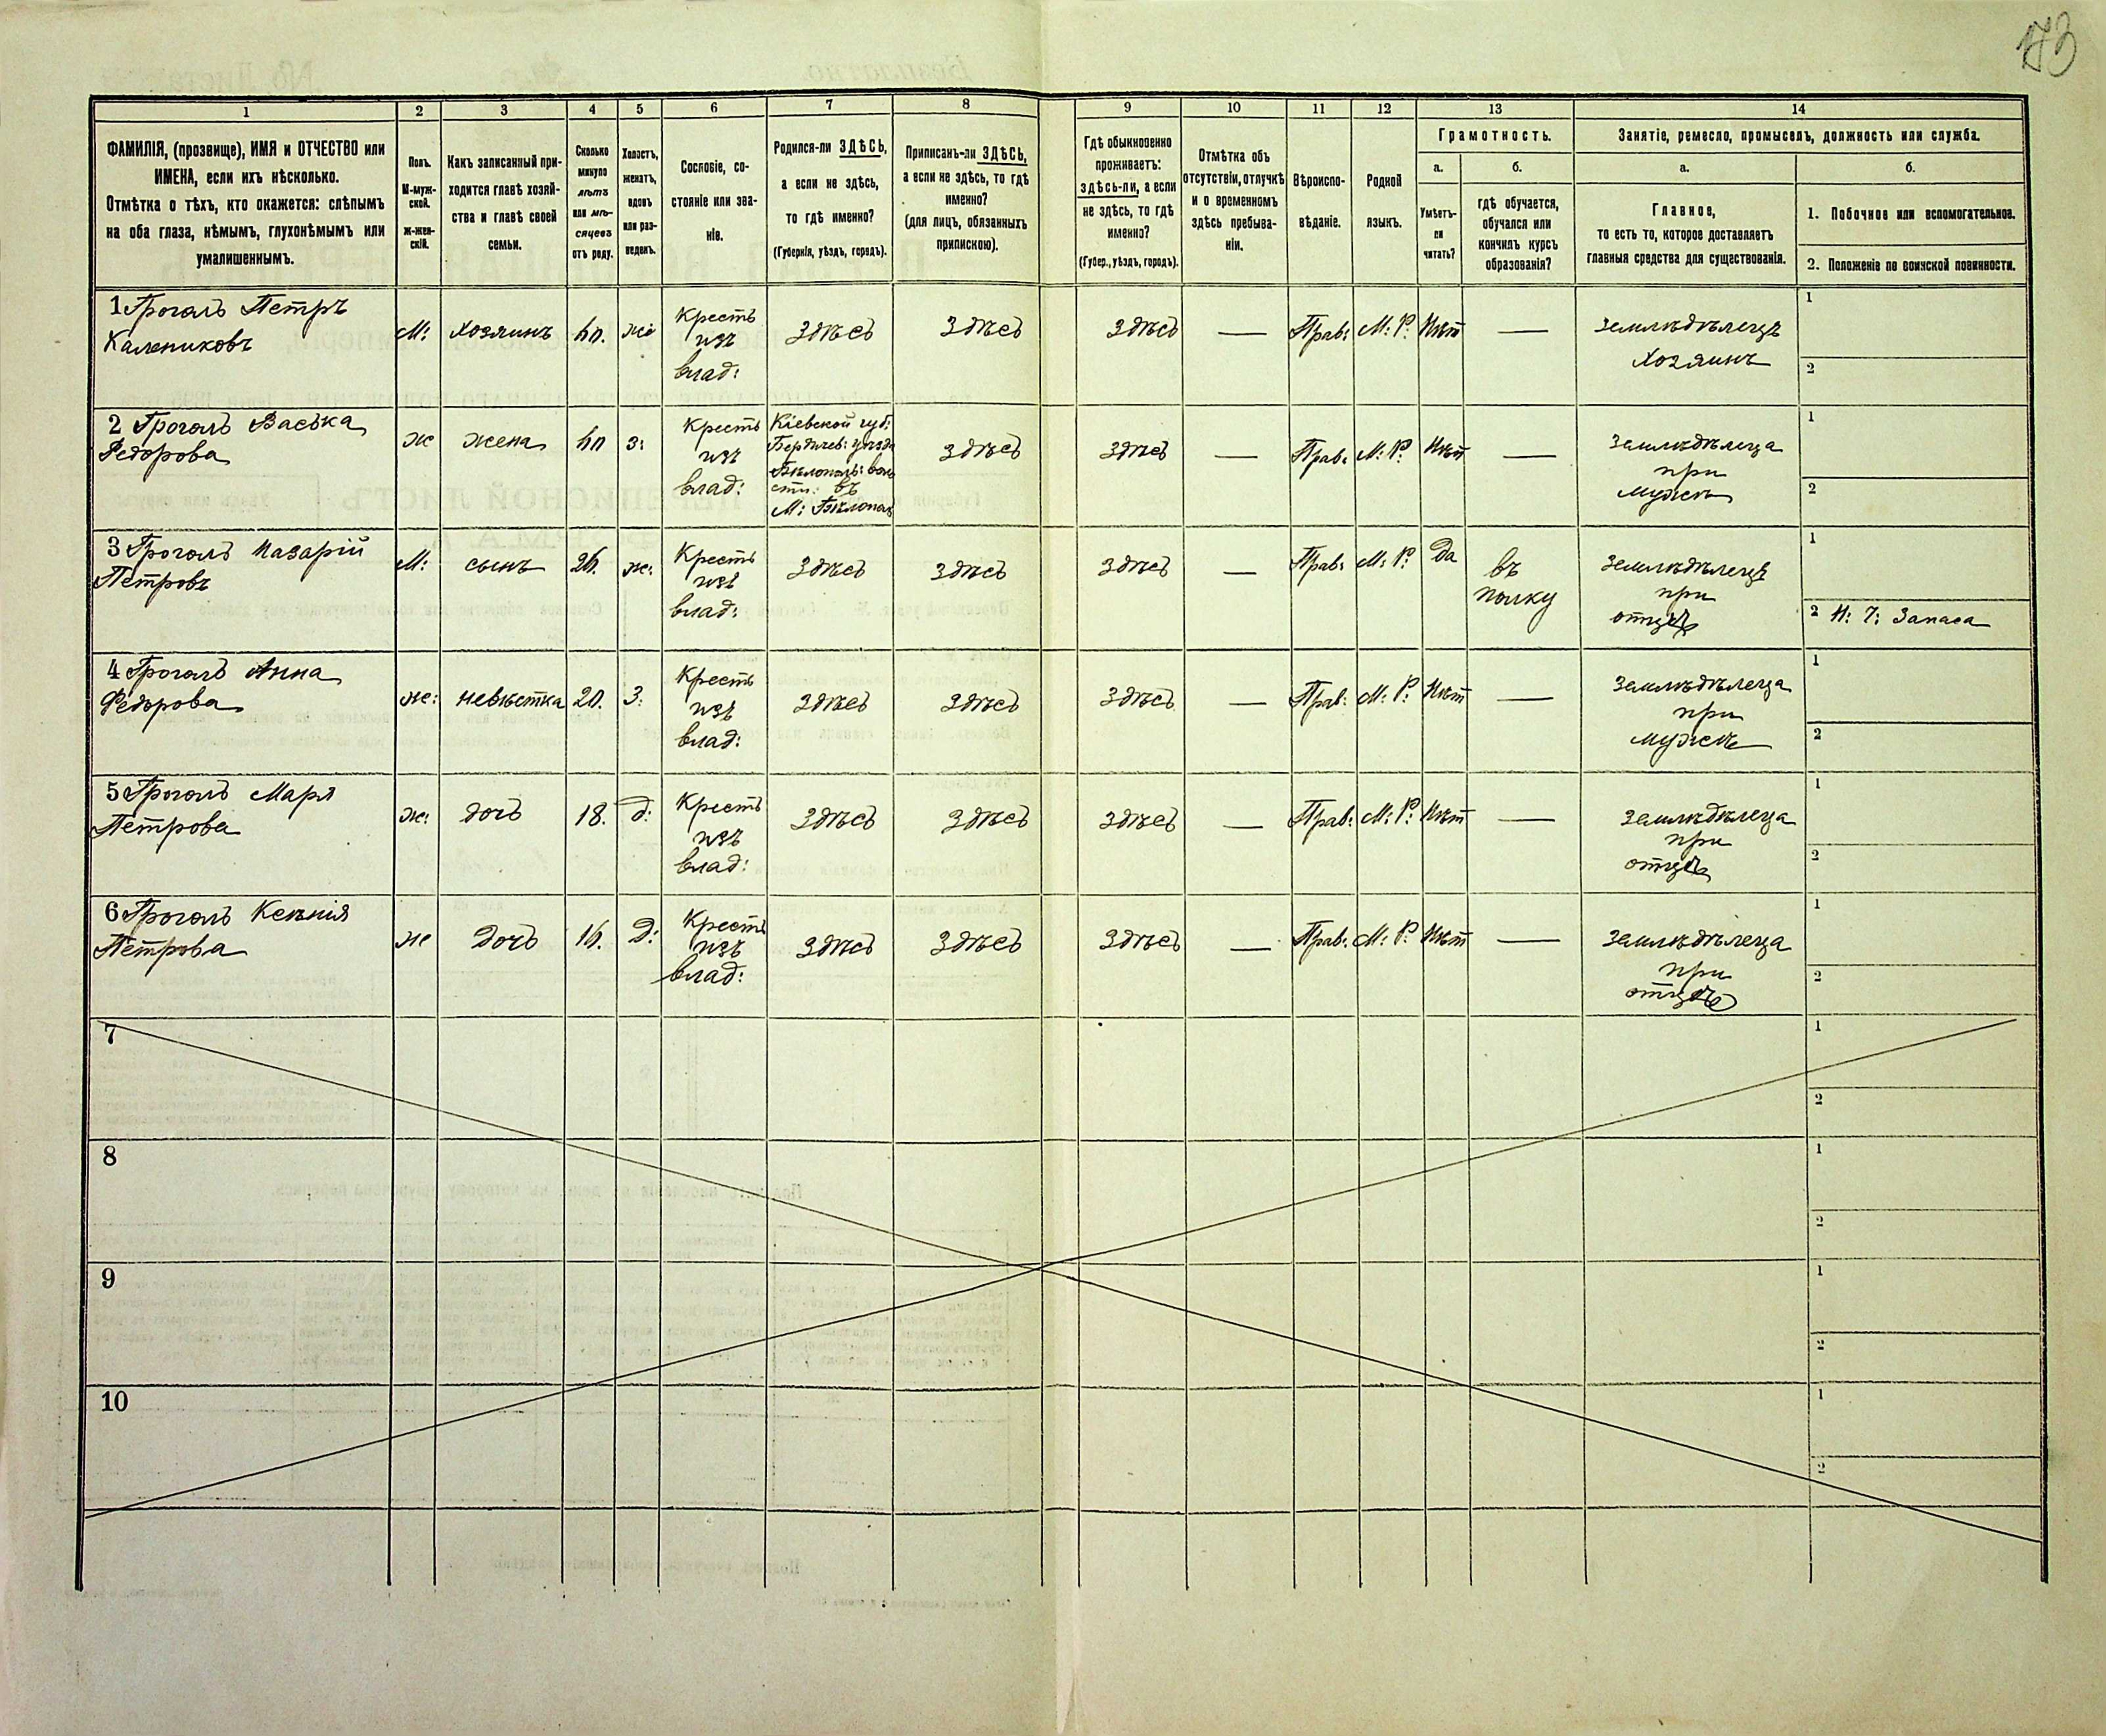 173
1
2
3
4
5
6
7
8
9
10
11
12
13
14
ФАМИЛІЯ, (прозвище), ИМЯ и ОТЧЕСТВО или
ИМЕНА, если ихъ нѣсколько.
Отмѣтка о тѣхъ, кто окажется: слѣпымъ
на оба глаза, нѣмымъ, глухонѣмымъ или
умалишеннымъ.
Полъ.
М-муж-
ской.
Ж-жен-
скій.
Какъ записанный при-
ходится главѣ хозяй-
ства и главѣ своей
семьи.
Сколько
минуло
лѣтъ
или мѣ-
сяцевъ
отъ роду.
Холостъ,
женатъ,
вдовъ
или раз-
веденъ.
Сословіе, со-
стояніе или зва-
ніе.
Родился-ли ЗДѢСЬ,
а если не здѣсь,
то гдѣ именно?
(Губернія, уѣздъ, городъ).
Приписанъ-ли ЗДѢСЬ,
а если не здѣсь, то гдѣ
именно?
(для лицъ, обязанныхъ
припискою).
Гдѣ обыкновенно
проживаетъ:
здѣсь-ли, а если
не здѣсь, то гдѣ
именно?
(Губер., уѣздъ, городъ).
Отмѣтка объ
отсутствіи, отлучкѣ
и о временномъ
здѣсь пребыва-
ніи.
Вѣроиспо-
вѣданіе.
Родной
языкъ.
Грамотность.
а.
Умѣетъ-
ли
читать?
б.
гдѣ обучается,
обучался или
кончилъ курсъ
образованія?
Занятіе, ремесло, промыселъ, должность или служба.
а.
Главное,
то есть то, которое доставляетъ
главныя средства для существованія.
б.
1. Побочное или вспомогательное.
2. Положеніе по воинской повинности.
1 Грогаль Петръ
Калениковъ
М:
Хозяинъ
же
Кресть
изъ
влад:
Здѣсь
Здѣсь
Здѣсь
—
Прав:
М: Р:
Нѣт
—
Землѣдѣлецъ
Хозяинъ
1
2
2 Грогаль Васька
Федорова
ж
жена
з:
Кресть
изъ
влад:
Кіевской губ:
Бердичев: уѣзда
Бѣлополь: воло
сти: въ
М: Бѣлополь
Здѣсь
Здѣсь
—
Прав:
М: Р:
Нѣт
Землѣдѣлеца
при
мужѣ
1
2
3 Грогаль Назарій
Петровъ
М:
сынъ
26.
же:
Кресть
изъ
влад:
Здѣсь
Здѣсь
Здѣсь
—
Прав:
М: Р:
Да
въ
полку
Землѣдѣлецъ
при
отцѣ
1
2 Н: Ч: Запаса
4 Грогаль Анна
Федорова
же:
невѣстка
20.
З:
Кресть
изъ
влад:
Здѣсь
Здѣсь
Здѣсь
—
Прав:
М: Р:
Нѣт
—
Землѣдѣлеца
при
мужѣ
1
2
5 Грогаль Маря
Петрова
же:
дочь
18.
д:
Кресть
изъ
влад:
Здѣсь
Здѣсь
Здѣсь
—
Прав:
М: Р:
Нѣт
—
Землѣдѣлеца
при
отцѣ
1
2
6 Грогаль Ксенія
Петрова
же
Дочь
16.
Д:
Кресть
изъ
влад:
Здѣсь
Здѣсь
Здѣсь
—
Прав:
М: Р:
Нѣт
—
Землѣдѣлеца
при
отцѣ
1
2
7
1
2
8
1
2
9
1
2
10
1
2